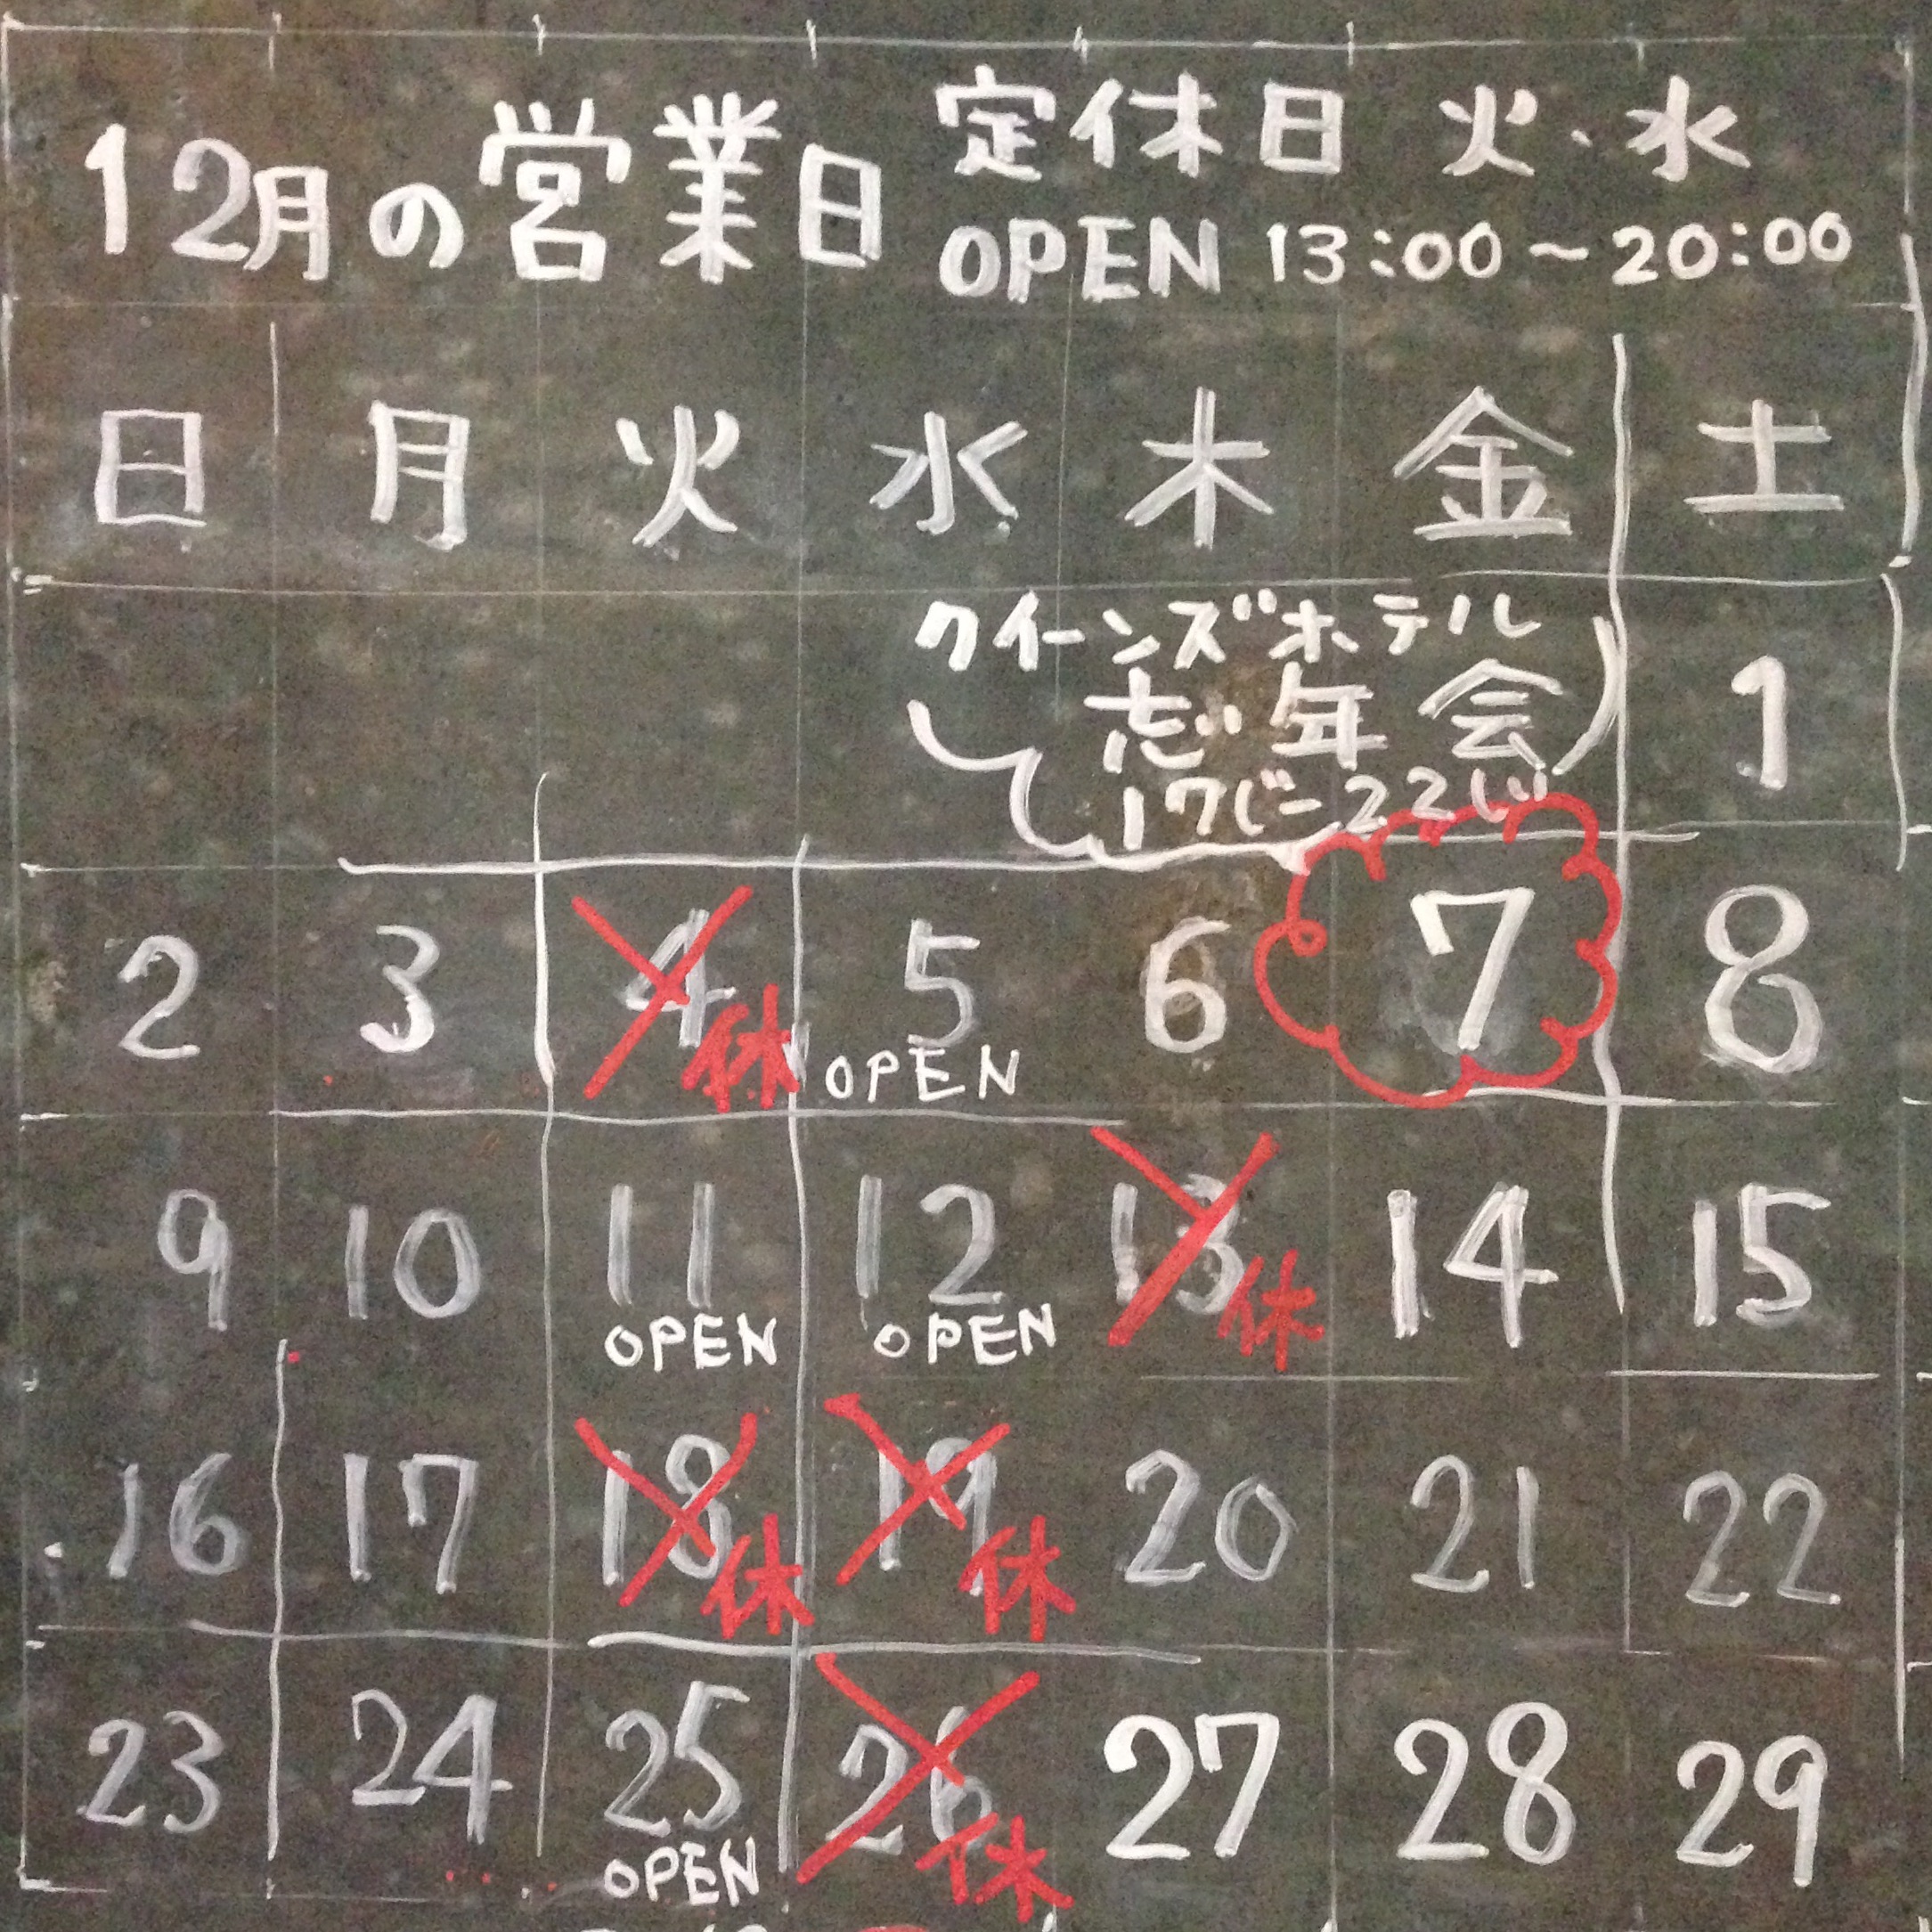 12月の営業日
定休日 火・水
OPEN 13:00～20:00
日 月 火 水 木 金 土
クイーンズホテル
忘年会
17じー22じ
1
2 3 4 5 6 7 8
休 OPEN
9 10 11 12 13 14 15
OPEN OPEN 休
16 17 18 19 20 21 22
休 休
23 24 25 26 27 28 29
OPEN 休